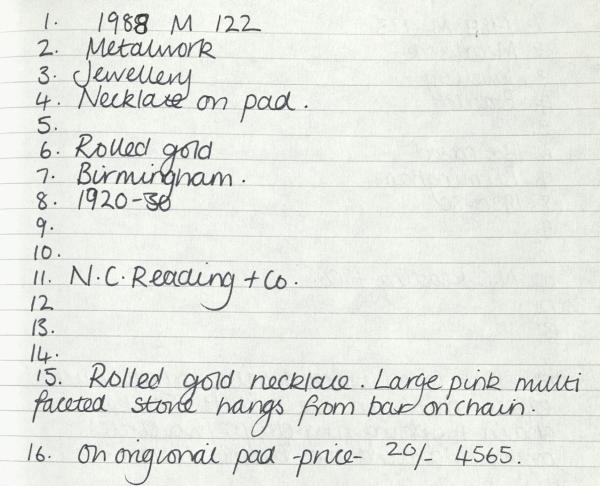 1. 1988 M 122
2. Metalwork
3. Jewellery
4. Necklace on pad.
5.
6. Rolled gold
7. Birmingham.
8. 1920-30
9.
10.
11. N.C. Reading + Co.
12
13.
14.
15. Rolled gold necklace. Large pink multi
faceted stone hangs from bar on chain.
16. On origional pad -price- 20/- 4565.